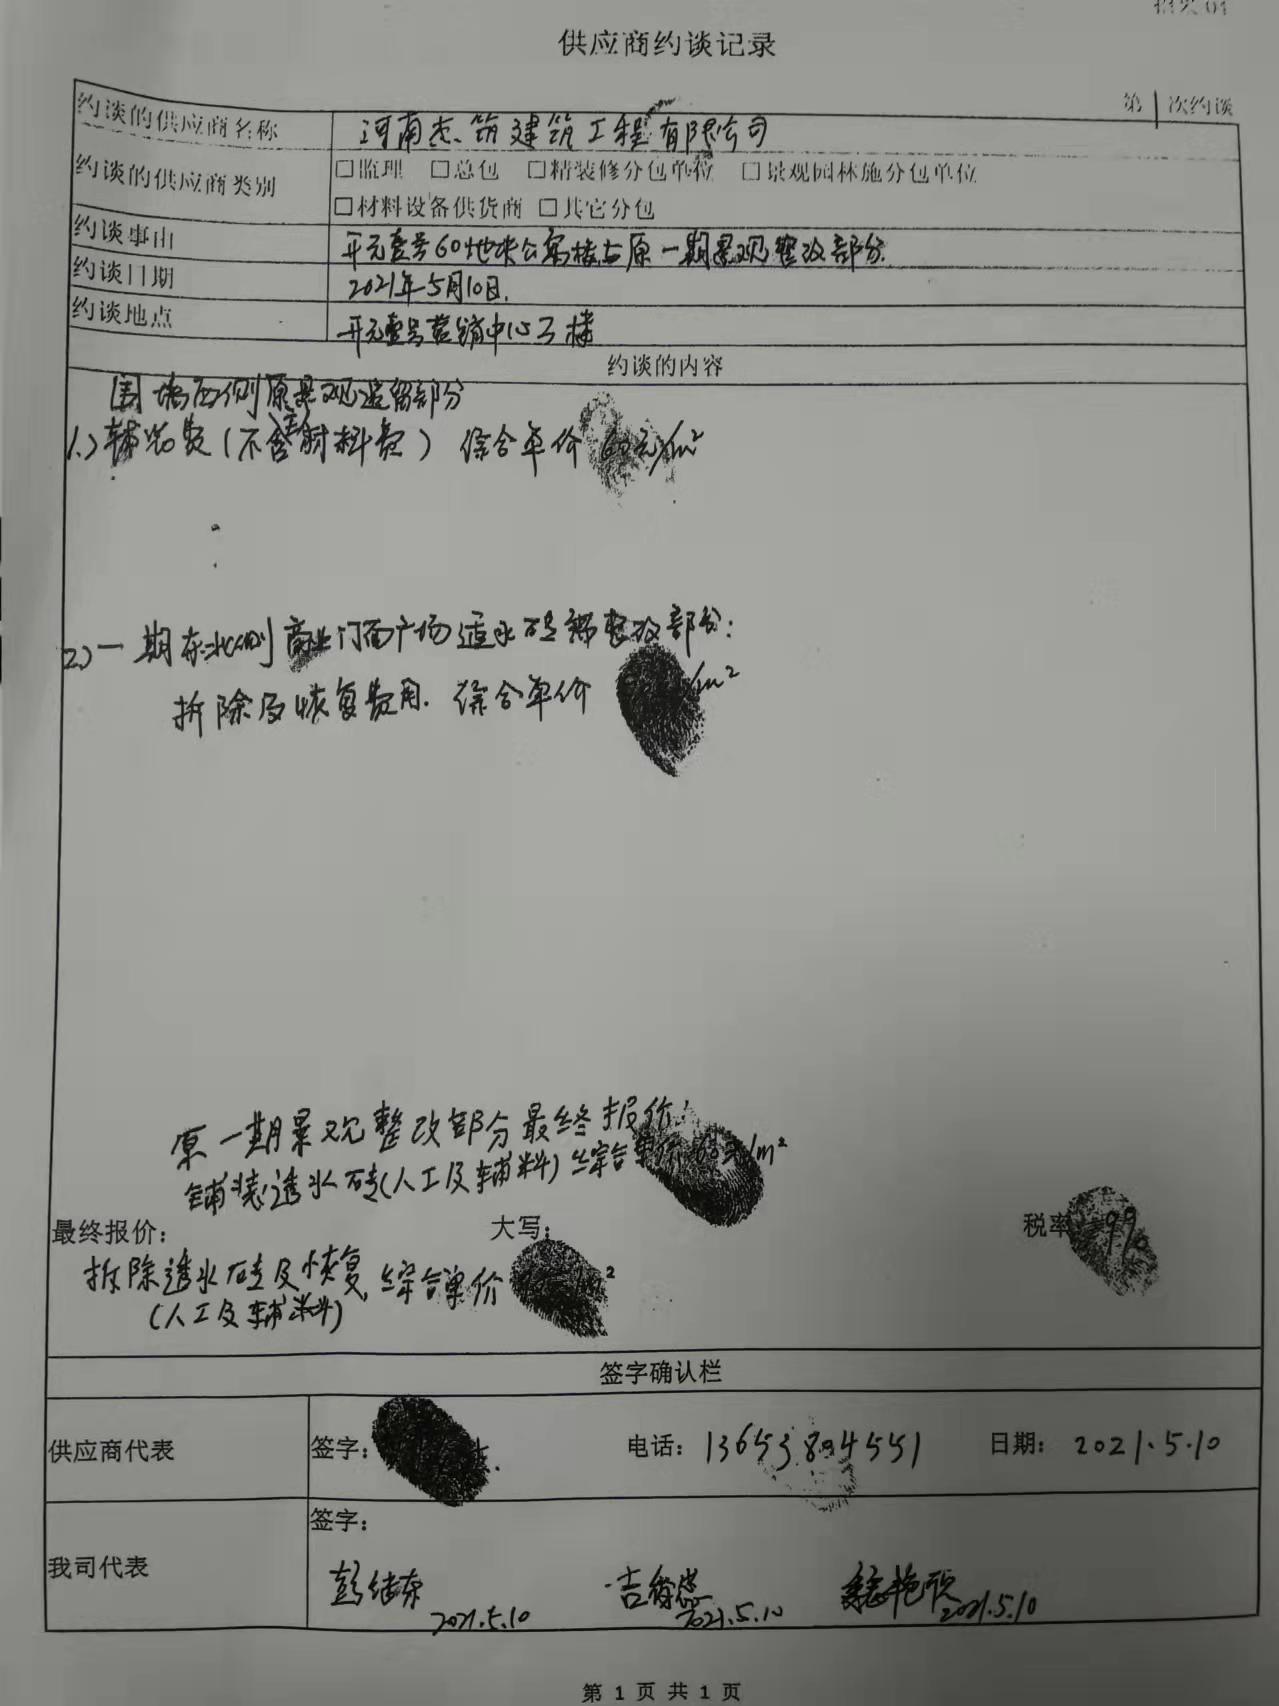 供应商约谈记录
第1次约谈
约谈的供应商名称 河南杰筑建筑工程有限公司
约谈的供应商类别 □监理 □总包 □精装修分包单位 □景观园林施分包单位
□材料设备供货商 □其它分包
约谈事由 开元壹号60地块公寓楼占原一期景观整改部分
约谈日期 2021年5月10日.
约谈地点 开元壹号营销中心3楼
约谈的内容
围墙西侧原景观遗留部分
1.) 铺装费(不含主材料费) 综合单价 60元/m²
2.) 一期东北侧商业门面广场透水砖 整改部分:
拆除及恢复费用. 综合单价 /m²
原一期景观整改部分最终报价:
铺装透水砖(人工及辅料)综合单价 /m²
最终报价: 大写: 税率: 9%
拆除透水砖及恢复, 综合单价 /m²
(人工及辅料)
签字确认栏
供应商代表 签字: 电话: 13653804551 日期: 2021.5.10
我司代表 签字:
彭结东 2021.5.10 2021.5.10 2021.5.10
第 1 页 共 1 页